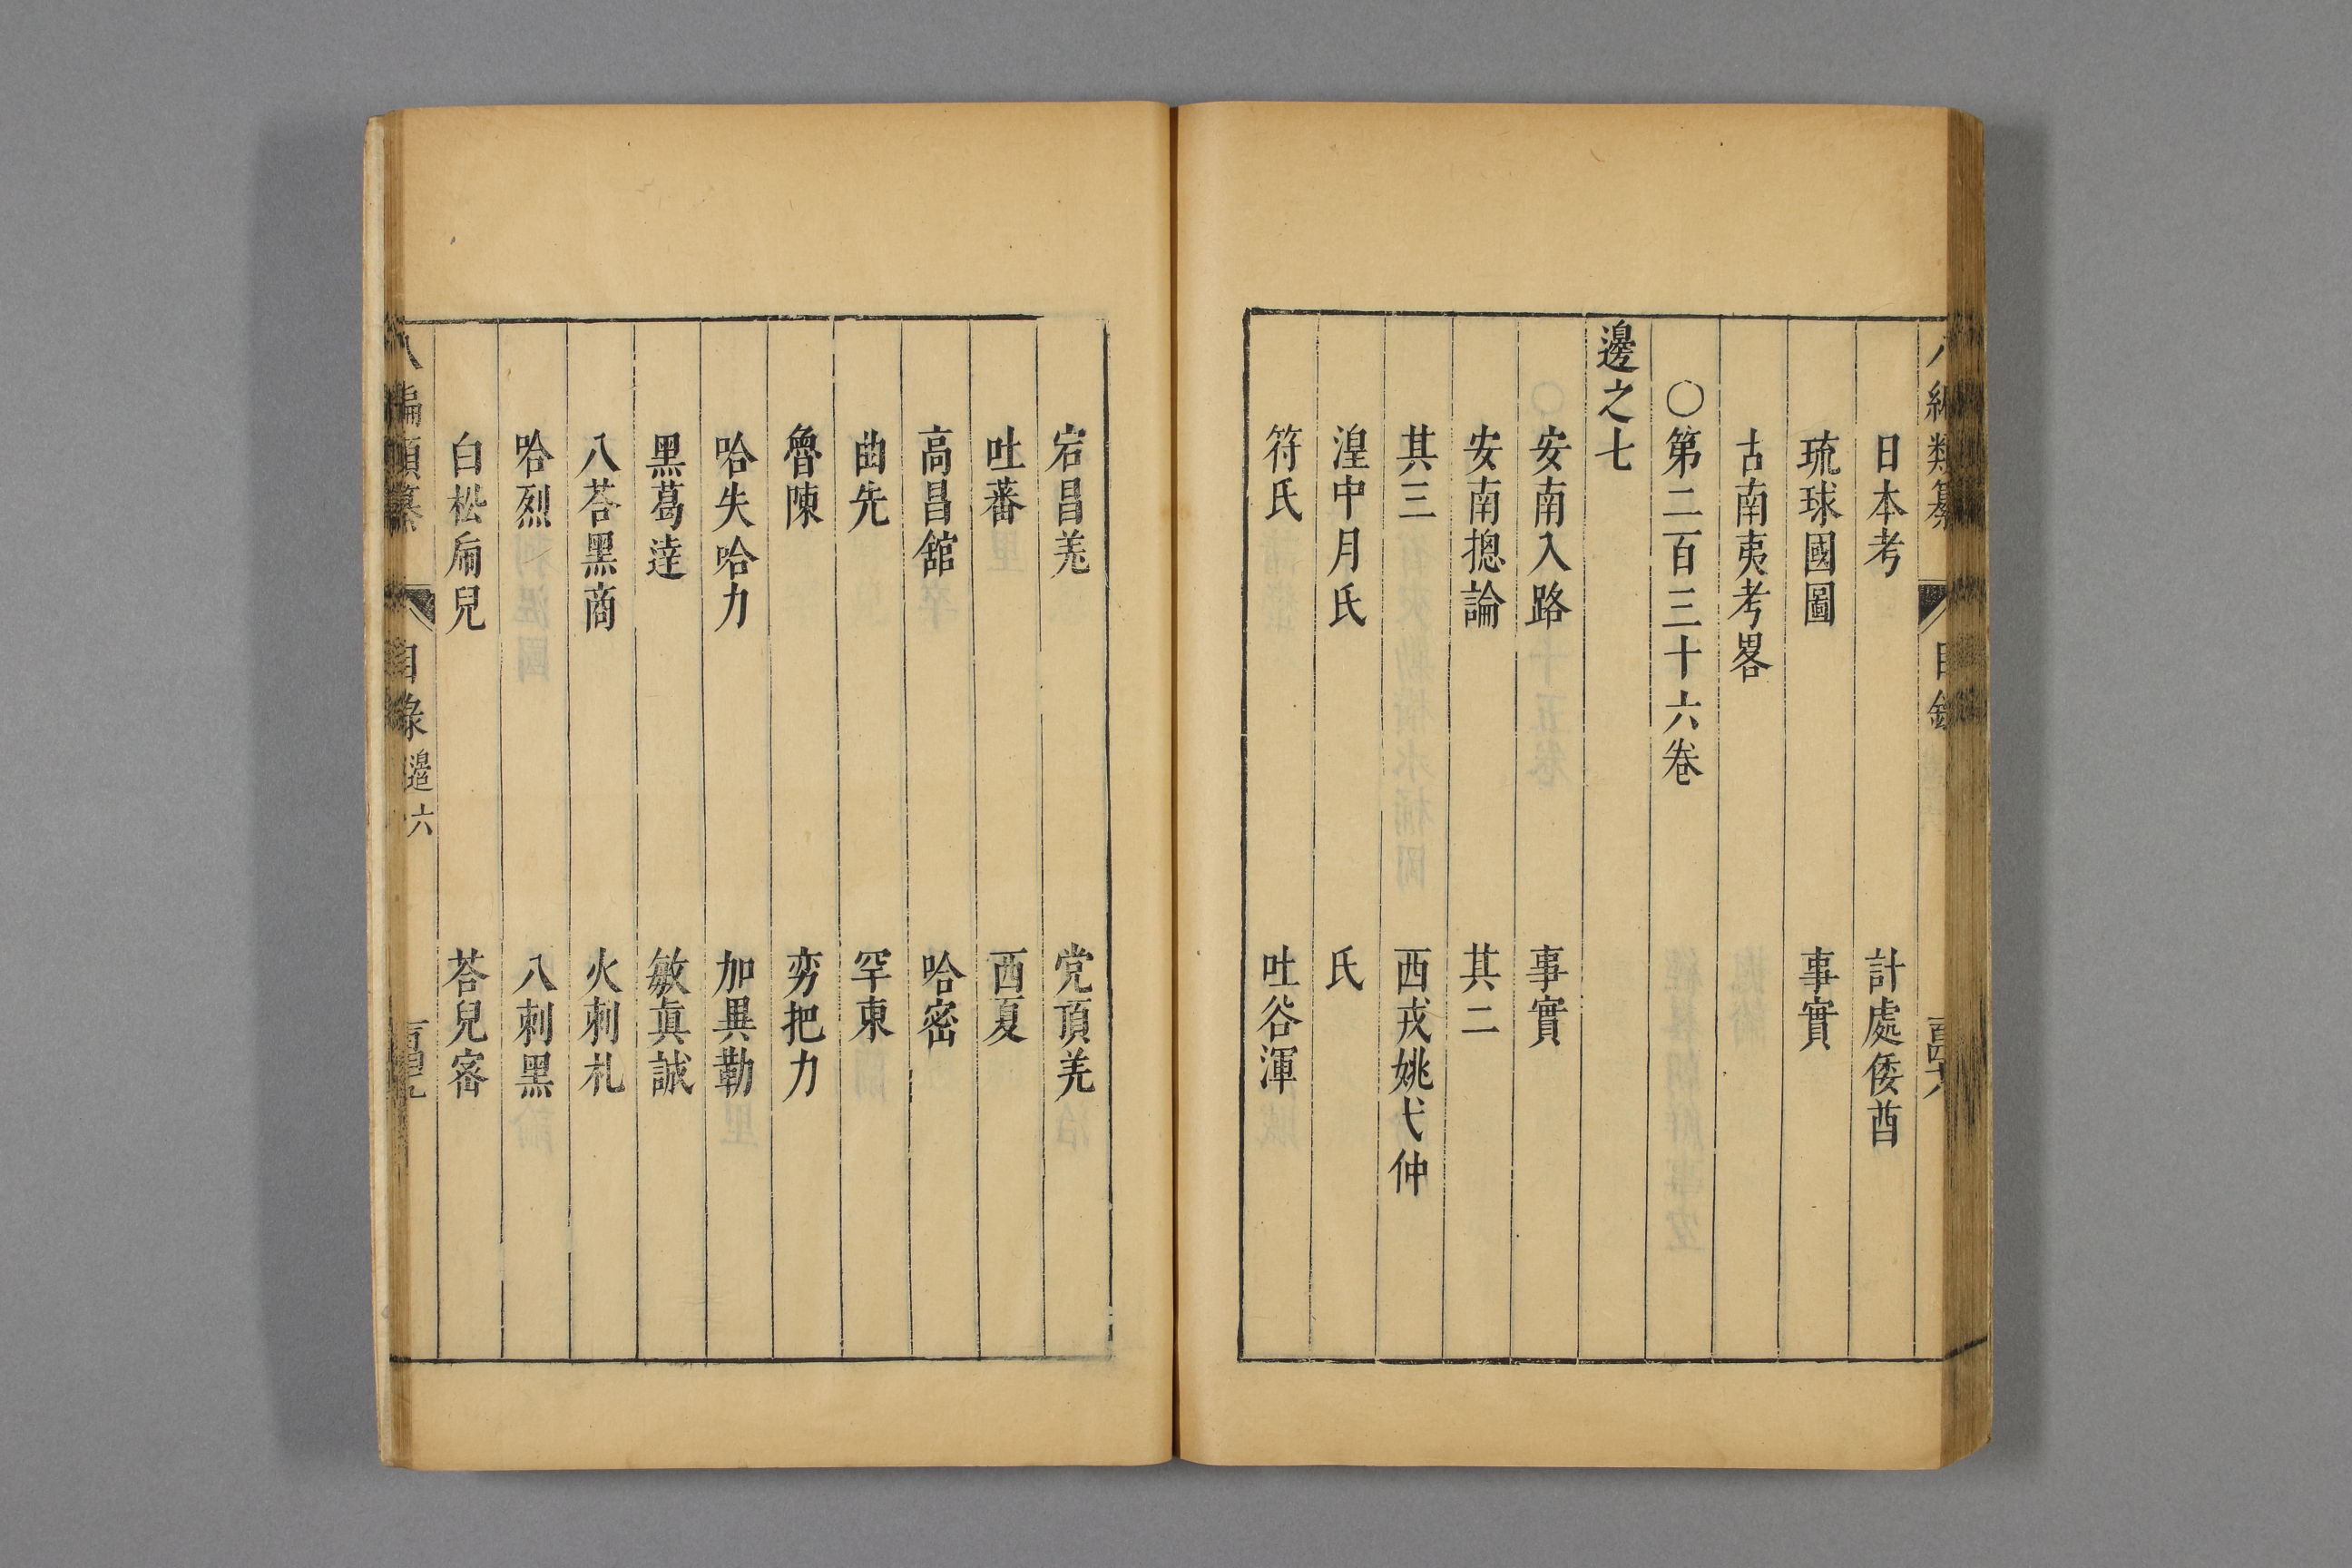 日本考　計處倭酋
琉球國圖　事實
古南夷考畧
〇第二百三十六卷
邊之七
安南入路　事實
安南摠論　其二
其三　西戎姚弋仲
湟中月氏　氏
符氏　吐谷渾
宕昌羌　党頂羌
吐蕃　西夏
高昌舘　哈密
曲先　罕東
魯陳　亦把力
哈失哈力　加異勒
黑葛逹　敏眞誠
八荅黑商　火刺札
哈烈　八刺黑
白松兒　荅兒宻
八編類纂　目錄　邊六